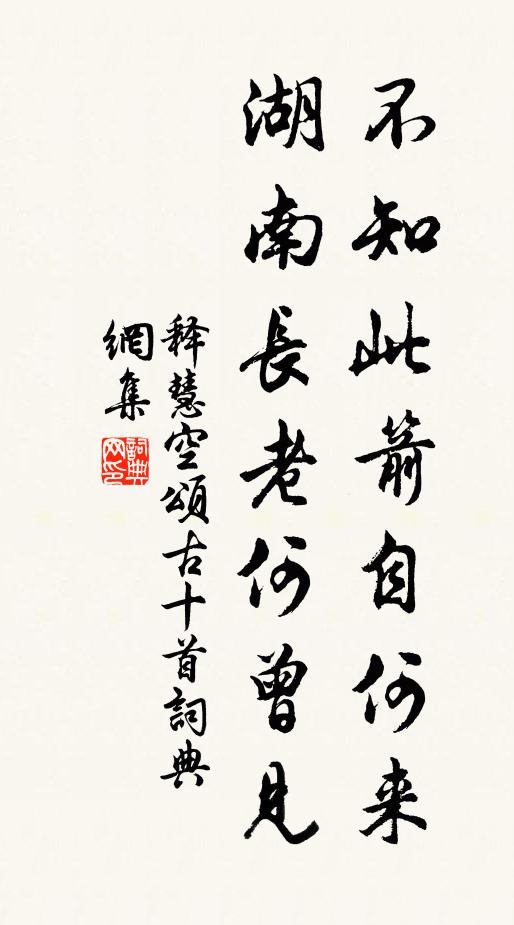 不知此箭自何来
湖南長老何曾見
释慧空頌古十首詞典
網集
詞典
网印